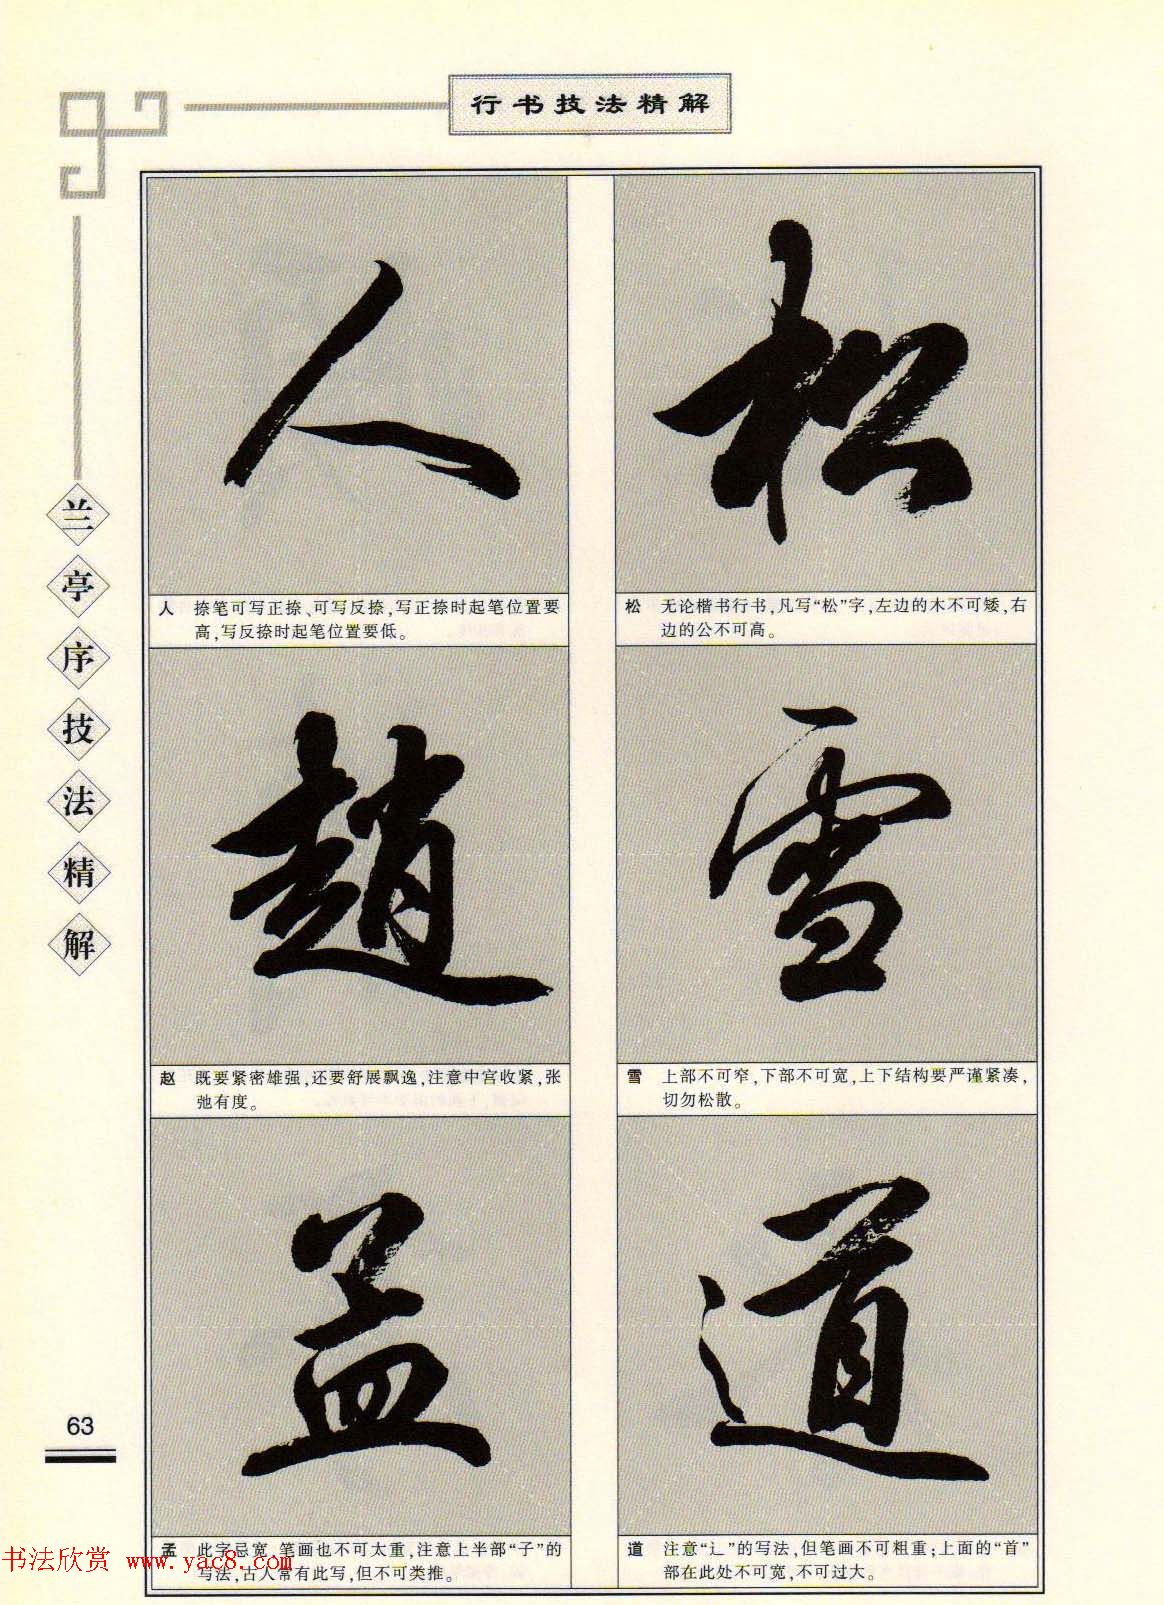 行书技法精解
兰亭序技法精解
松
松 无论楷书行书,凡写“松”字,左边的木不可矮,右
边的公不可高。
雪
雪 上部不可窄,下部不可宽,上下结构要严谨紧凑,
切勿松散。
道
道 注意“辶”的写法,但笔画不可粗重;上面的“首”
部在此处不可宽,不可过大。
人
人 捺笔可写正捺、可写反捺,写正捺时起笔位置要
高,写反捺时起笔位置要低。
趙
赵 既要紧密雄强,还要舒展飘逸,注意中宫收紧,张
弛有度。
孟
孟 此字忌宽,笔画也不可太重,注意上半部“子”的
写法,古人常有此写,但不可类推。
63
书法欣赏 www.yac8.com